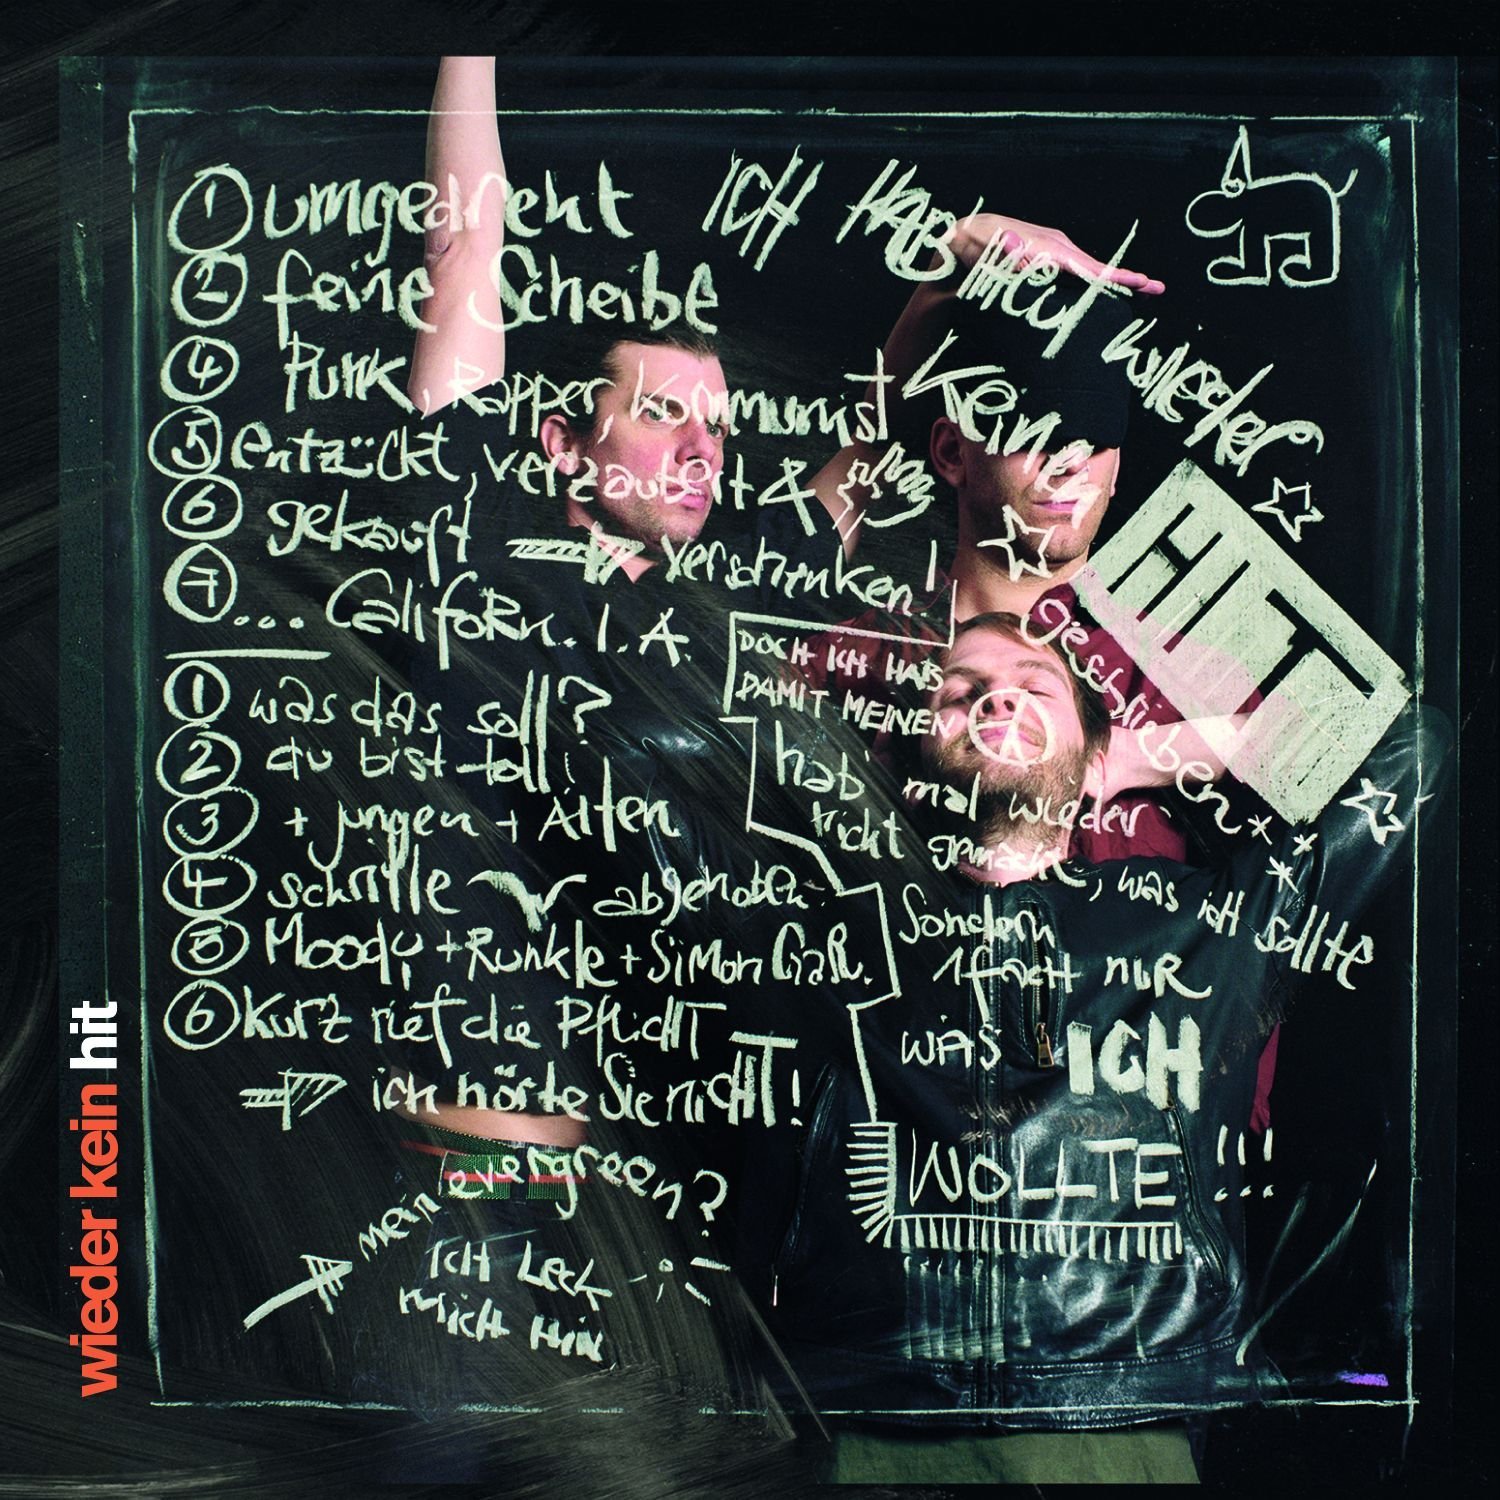 ① umgedreht
② feine Scheibe
④ Punk, Rapper, Kommunist
⑤ entzückt, verzaubert &
⑥ gekauft verschenken!
⑦ ... CalifoRn. I. A.
① was das soll?
② du bist toll!
③ + jungen + Alten
④ schrille abgehoben.
⑤ Moody + Runkle + Simon GaR.
⑥ kurz rief die PflichT
ich hörte Sie nichT!
mein evergreen?
ich Leck
mich hin
ICH HAB HeuT wieder
Keinen
HIT
Geschrieben
DOCH ICH HAB
DAMIT MEINEN
hab' mal wieder
nicht gemacht, was ich sollte
Sondern
1fach nuR
wAS ICH
WOLLTE !!!
wieder kein hit